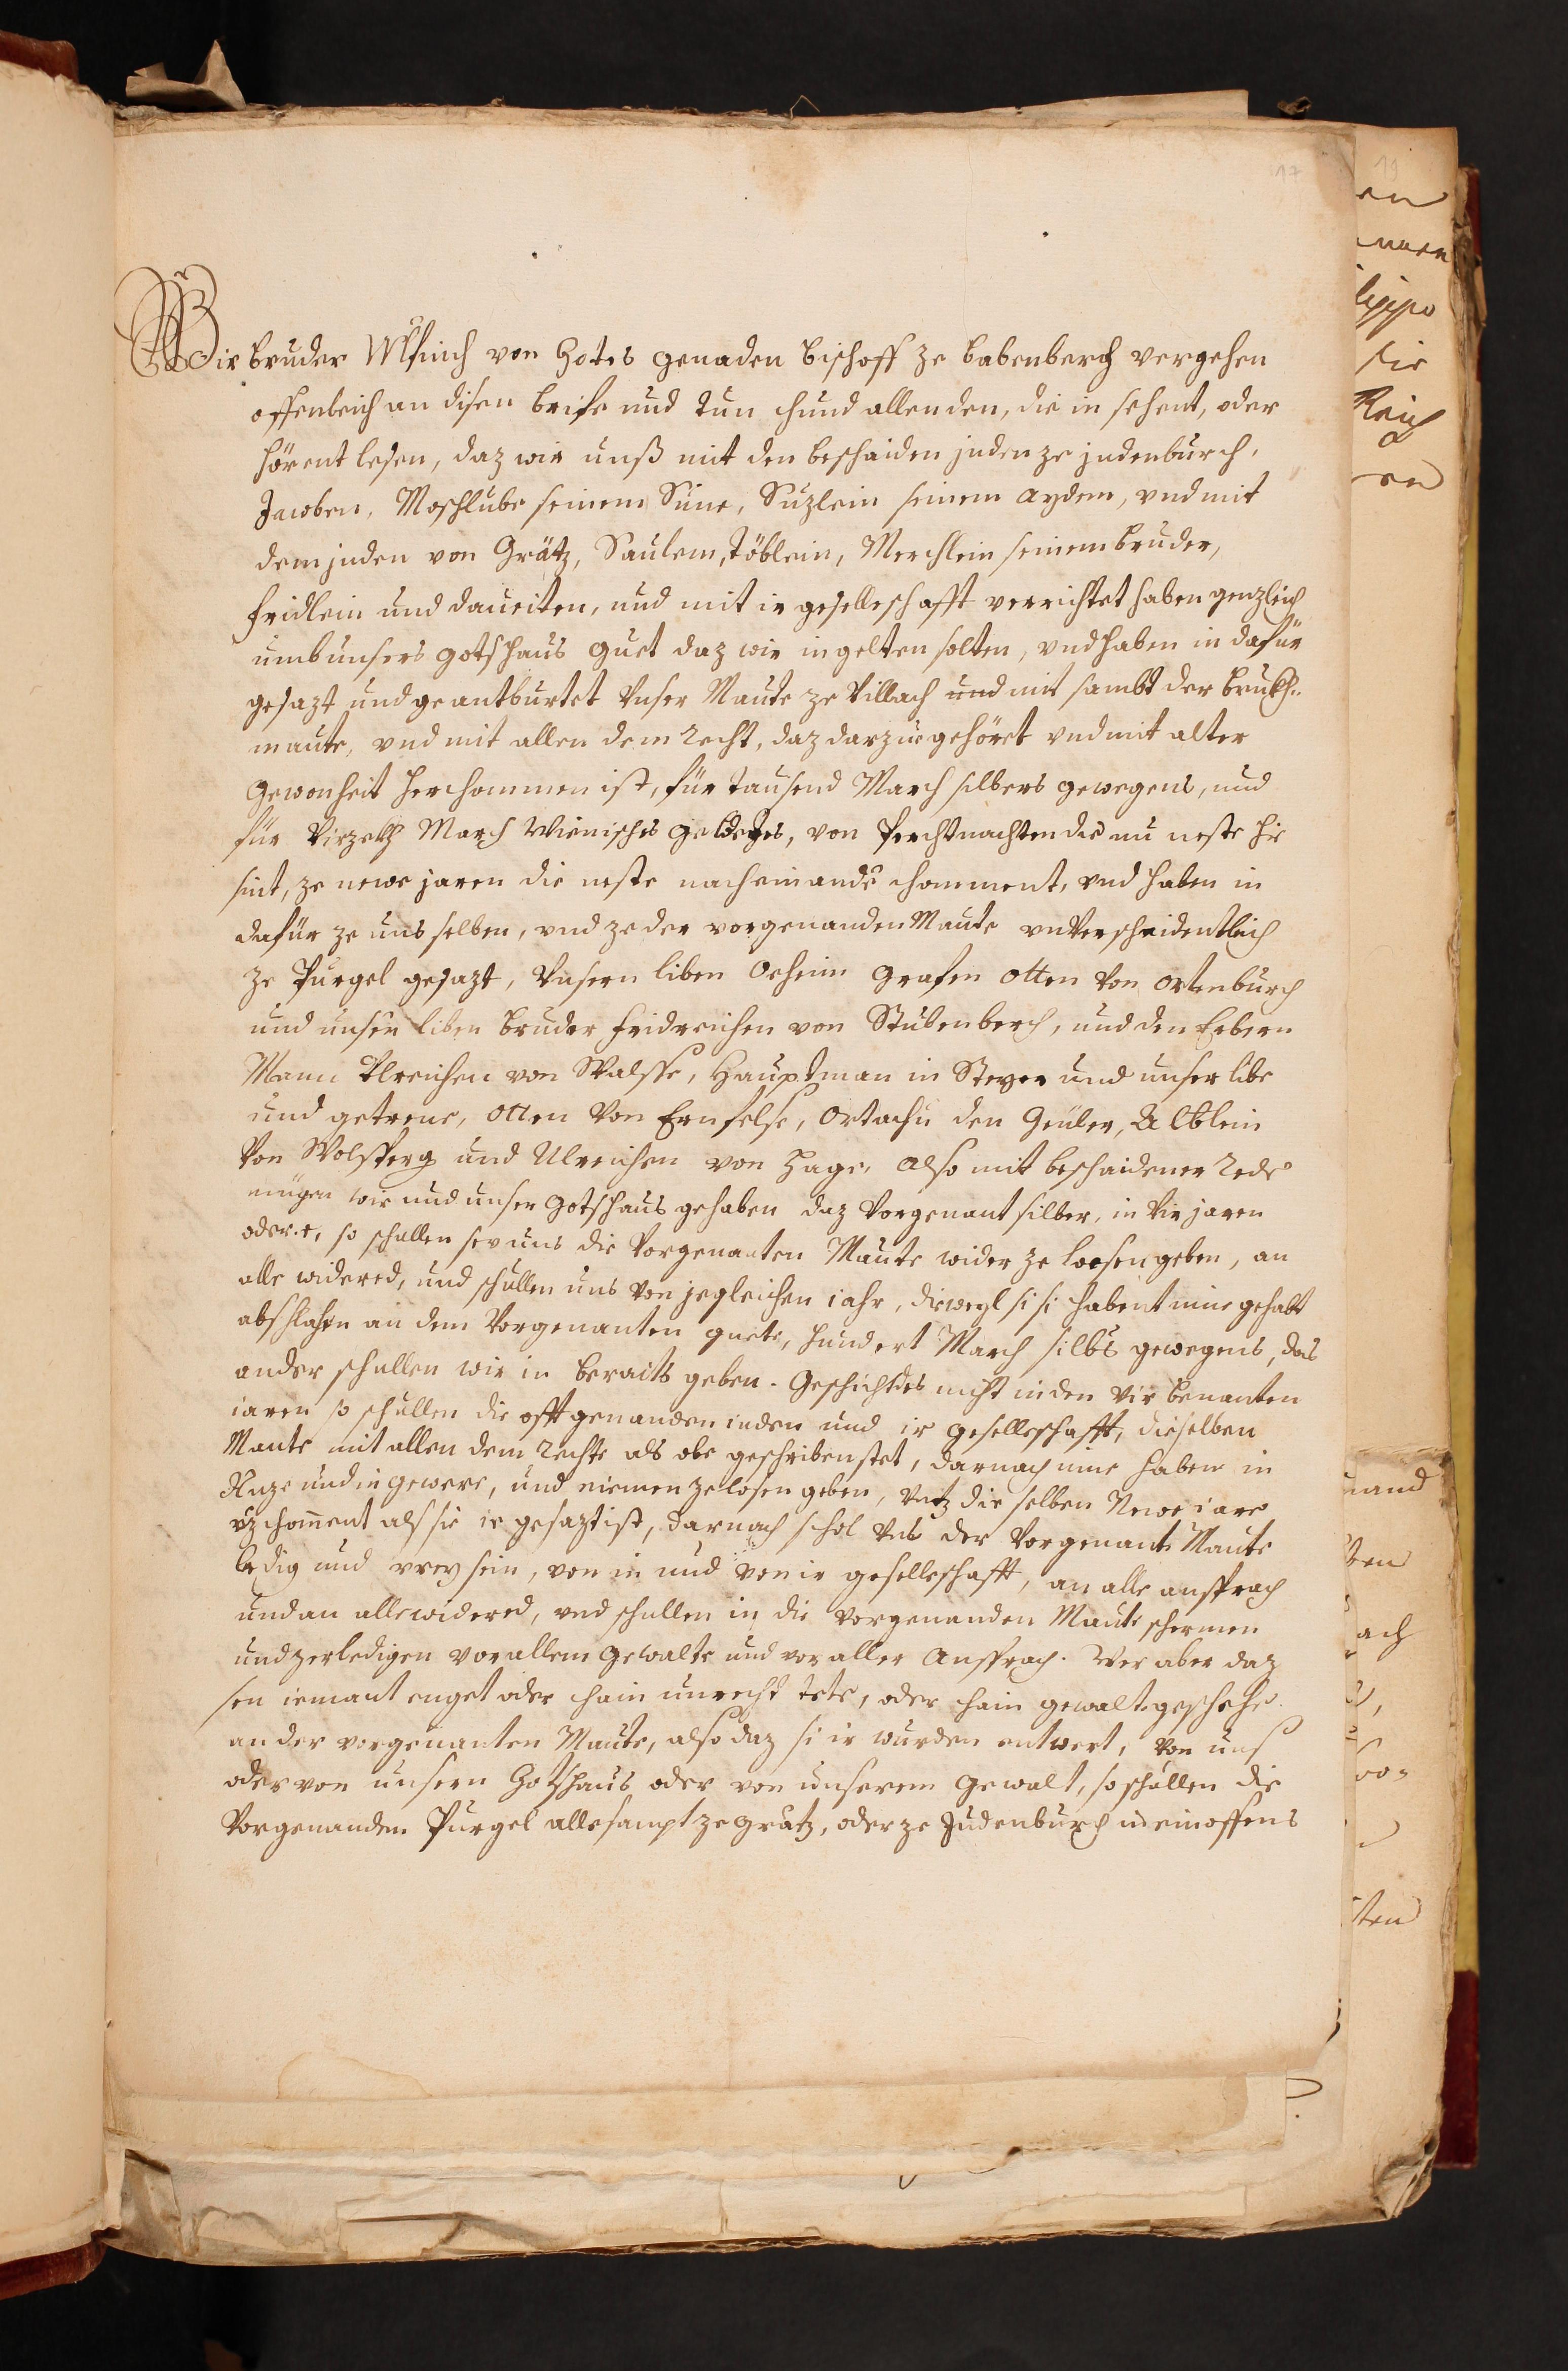 17
Wir bruder Wlfinch von Gotes genaden bischoff ze babenberch vergehen
offenleich an disen brife und tun chund allen den, die in sehent, oder
hörent lesen, daz wir unß mit den beschaiden juden ze judenburch,
Jacoben, Moschlube seinem Sune, Suzlein seinem aydem, vnd mit
dem juden von Grätz, Saulem, töblein, Merchlein seinem bruder,
fridlein und daviten, und mit ir geselleschafft verrichtet haben genzleich
umb unsers gotshaus guet daz wir in gelten solten, vnd haben in dafür
gesazt und geantburtet Unser Maute ze Villach und mit sambt der bruk¬
maute, vnd mit allen dem recht, daz darzue gehöret vnd mit alter
Gewonheit herchommen ist, für tausend March silbers gewegens, und
für Virzekh March Wienisches geldes, von Perchtnachten die nu neste hie
sint, ze newe jaren die neste nach einander choment, vnd haben in
dafür ze uns selben, vnd ze der vorgenanden Maute unverscheidentleich
ze Purgel gesazt, Unsern liben Oeheim Grafen Otten Von Ortenburch
und unsern liben bruder fridreichen von Stubenberch, und den Erbern
Mann Ulreichen von Walsse, Hauptman in Steyer und unser libe
und getreue, Otten Von Ernfelse, Ortachn den Geuler, Alblein
Von Wolsperg und Ulreichen von Hage, Also mit beschaidener rede
mügen wir und unser Gotshaus gehaben daz Vorgenant silber, in Vir jaren
oder e, so schullen sev uns die Vorgenanten Maute wider ze loesen geben, an
alle widered, und schullen uns Von jegleichen jahr, dieweyl si si habent inne gehabt
abslahen an dem Vorgenanten guete, hundert March silbers gewegens, das
ander schullen wir in beraits geben. Geschicht des nicht in den Vir benanten
jaren so schullen die offt genanden juden und ir geselleschafft, dieselben
Maute mit allen dem rechte als obe geschriben stet, darnach inne haben in
Nuze und in gewere, und niemen ze losen geben, Untz die selben Newe jare
uz choment als sie ir gesazt ist, darnach schol Uns der Vorgenante Maute
ledig und vrey sein, von in und von ir geselleschafft, an alle ansprach
und an alle widered, vnd schullen in die vorgenanden Maute schermen
und zerledigen vor allem Gewalte und vor aller Ansprach. Wer aber daz
sev iemant enget oder chain unrecht tete, oder chain gewalt geschehe
an der vorgenanten Maute, also daz si ir wurden entwert, von uns
oder von unserm Gotshaus oder von unserem Gewalt, so schullen die
Vorgenanden Purgel allesampt ze Grätz, oder ze Judenburch in ein offens
19
ach
ten